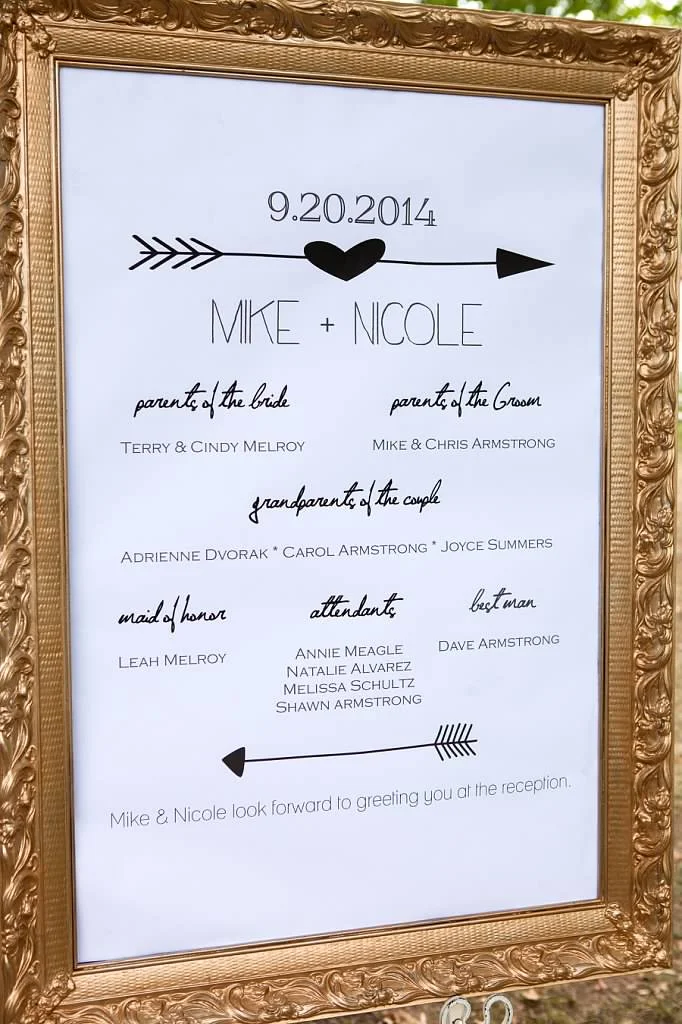 9.20.2014
MIKE + NICOLE
parents of the bride
TERRY & CINDY MELROY
parents of the Groom
MIKE & CHRIS ARMSTRONG
grandparents of the couple
ADRIENNE DVORAK * CAROL ARMSTRONG * JOYCE SUMMERS
maid of honor
LEAH MELROY
attendants
ANNIE MEAGLE
NATALIE ALVAREZ
MELISSA SCHULTZ
SHAWN ARMSTRONG
best man
DAVE ARMSTRONG
Mike & Nicole look forward to greeting you at the reception.